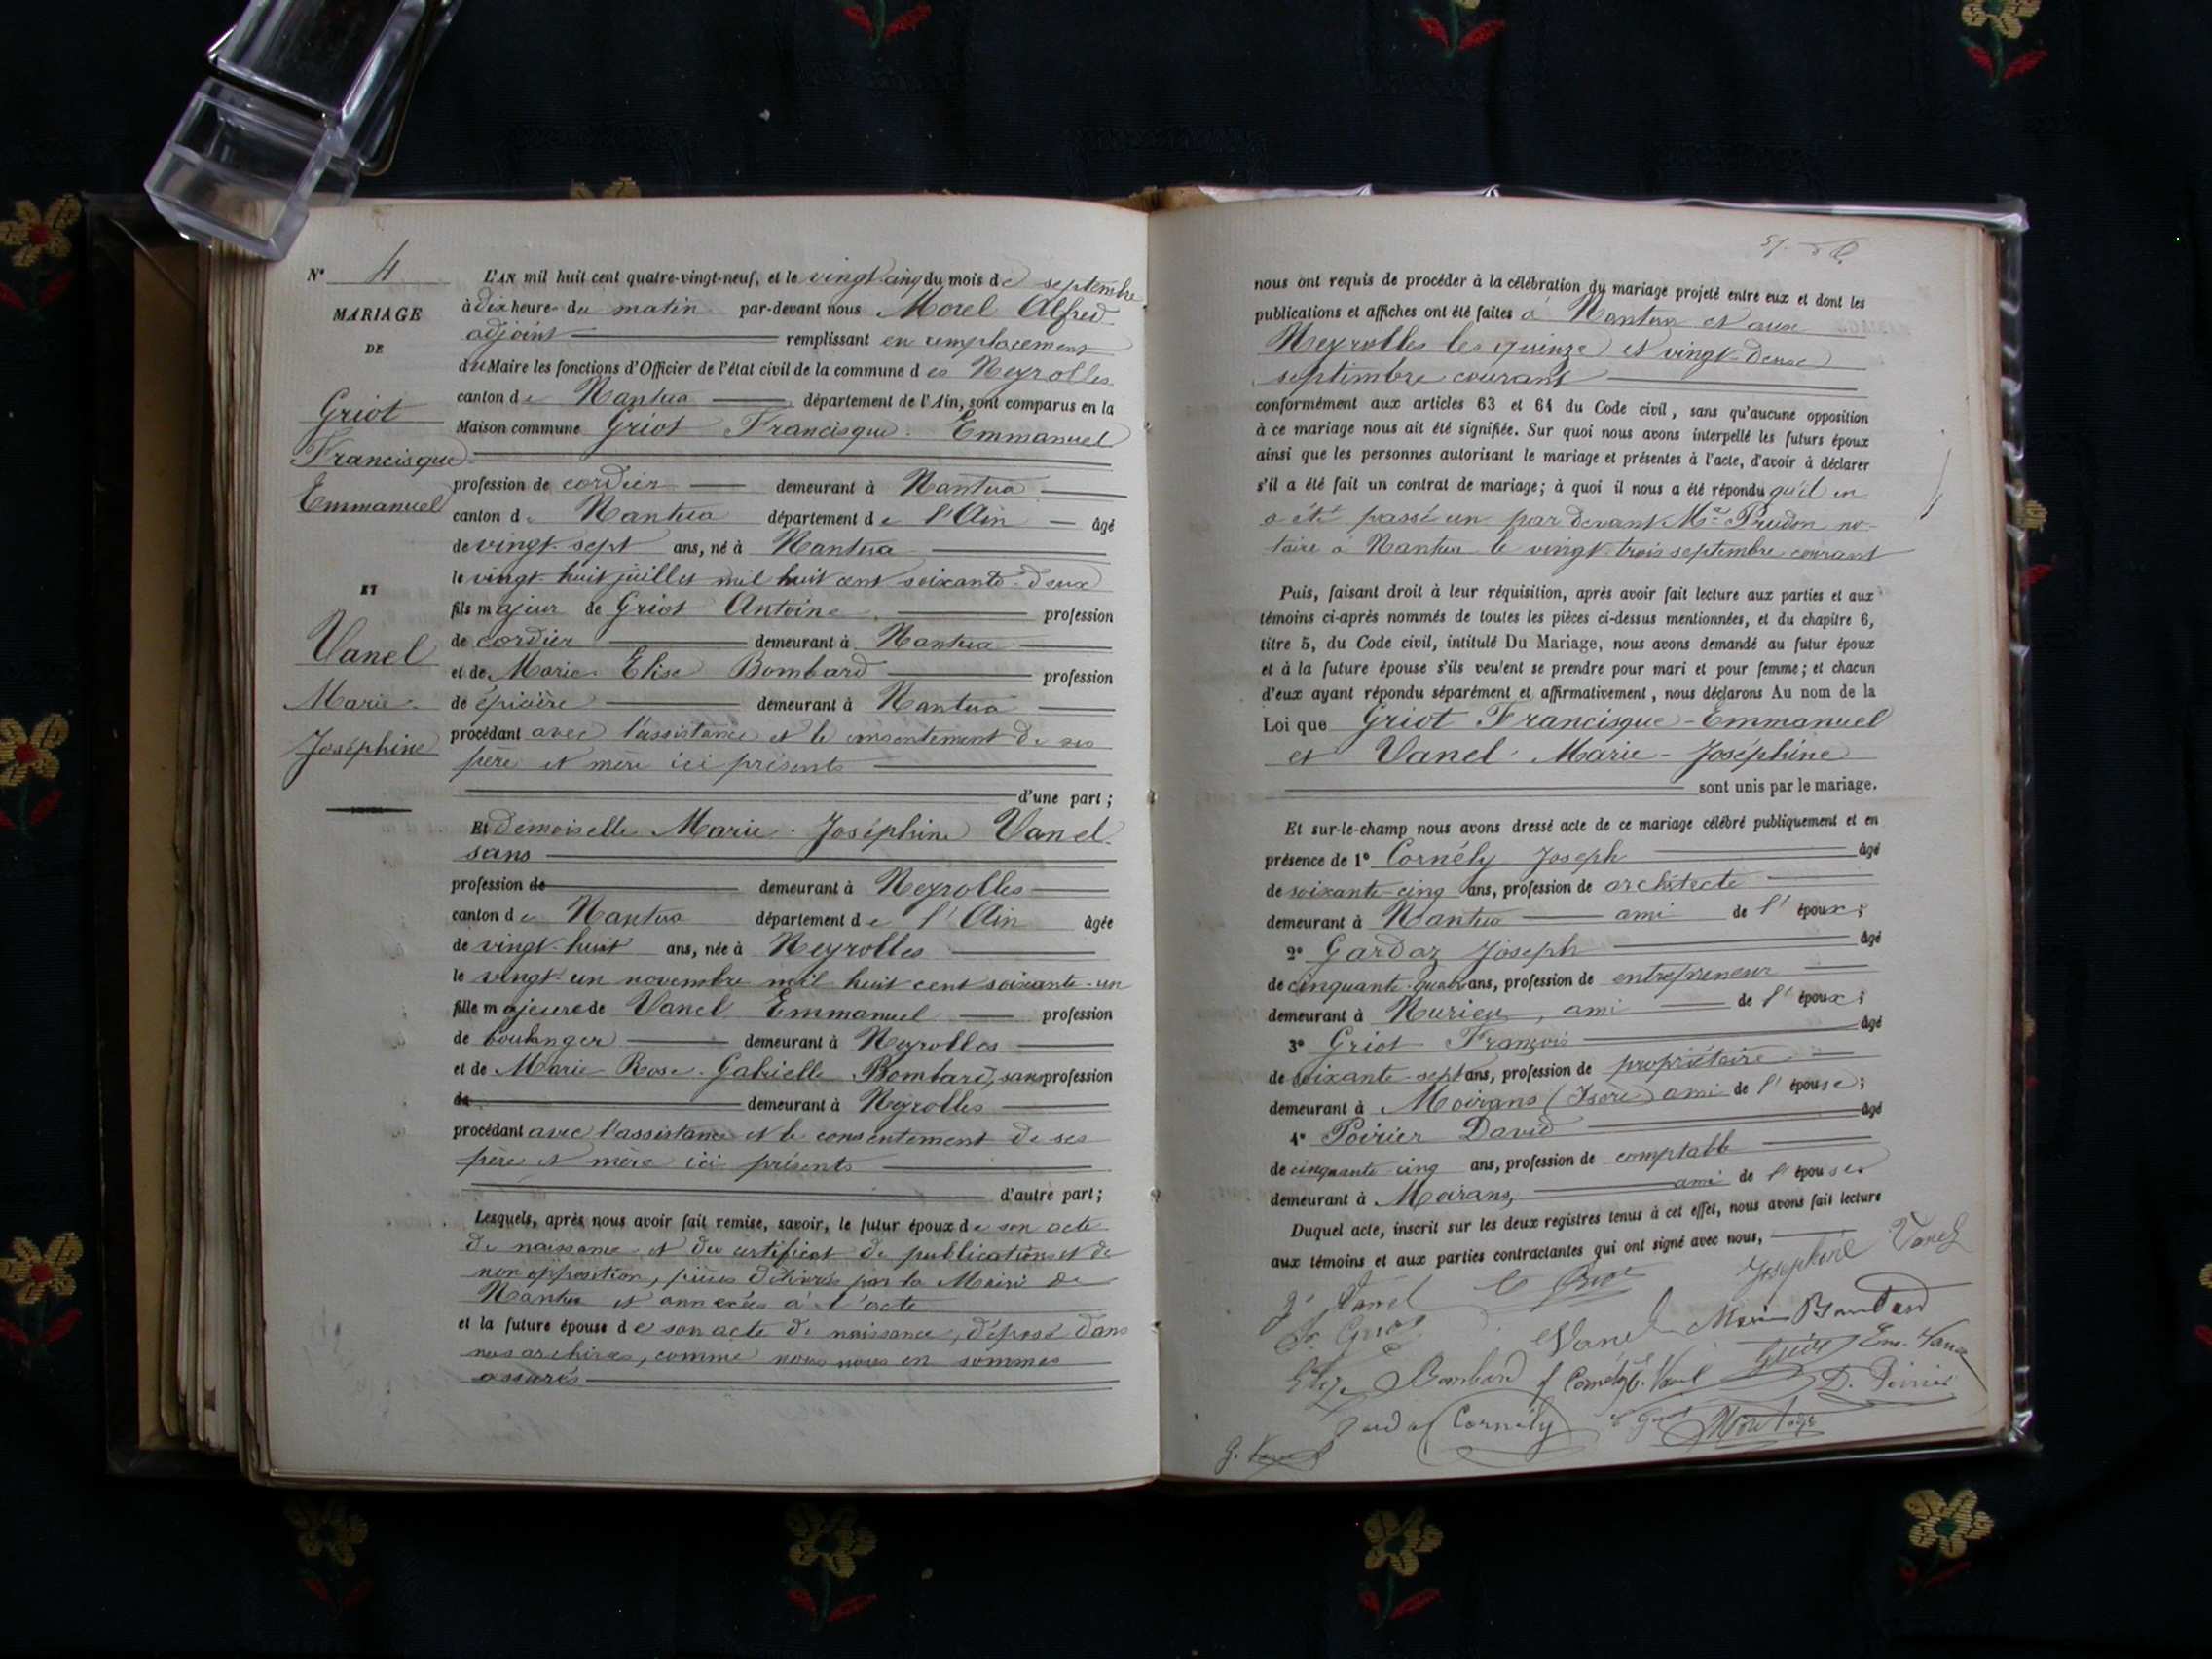 N° 4
MARIAGE
DE
Griot
Francisque
Emmanuel
ET
Vanel
Marie
Joséphine
L'AN mil huit cent quatre-vingt-neuf, et le vingt cinq du mois de septembre
à dix heures du matin par-devant nous Morel Alfred
adjoint remplissant en remplacement
du Maire les fonctions d'Officier de l'état civil de la commune des Neyrolles
canton de Nantua département de l'Ain, sont comparus en la
Maison commune Griot Francisque Emmanuel
profession de cordier demeurant à Nantua
canton de Nantua département de l'Ain âgé
de vingt-sept ans, né à Nantua
le vingt-huit juillet mil huit cent soixante-deux
fils majeur de Griot Antoine profession
de cordier demeurant à Nantua
et de Marie Elise Bombard profession
de épicière demeurant à Nantua
procédant avec l'assistance et le consentement de ses
père et mère ici présents
d'une part;
Et demoiselle Marie Joséphine Vanel
sans
profession de demeurant à Neyrolles
canton de Nantua département de l'Ain âgée
de vingt-huit ans, née à Neyrolles
le vingt-un novembre mil huit cent soixante-un
fille majeure de Vanel Emmanuel profession
de boulanger demeurant à Neyrolles
et de Marie Rose Gabrielle Bombard, sans profession
de demeurant à Neyrolles
procédant avec l'assistance et le consentement de ses
père et mère ici présents
d'autre part;
Lesquels, après nous avoir fait remise, savoir, le futur époux de son acte
de naissance et du certificat de publications et de
non opposition, pièces délivrées par la Mairie de
Nantua et annexées à l'acte
et la future épouse de son acte de naissance, déposé dans
nos archives, comme nous nous en sommes
assurés
nous ont requis de procéder à la célébration du mariage projeté entre eux et dont les
publications et affiches ont été faites à Nantua et aux
Neyrolles les quinze et vingt-deux
septembre courant
conformément aux articles 63 et 64 du Code civil, sans qu'aucune opposition
à ce mariage nous ait été signifiée. Sur quoi nous avons interpellé les futurs époux
ainsi que les personnes autorisant le mariage et présentes à l'acte, d'avoir à déclarer
s'il a été fait un contrat de mariage; à quoi il nous a été répondu qu'il en
a été passé un par devant Me Prudon no-
taire à Nantua le vingt-trois septembre courant
Puis, faisant droit à leur réquisition, après avoir fait lecture aux parties et aux
témoins ci-après nommés de toutes les pièces ci-dessus mentionnées, et du chapitre 6,
titre 5, du Code civil, intitulé Du Mariage, nous avons demandé au futur époux
et à la future épouse s'ils veulent se prendre pour mari et pour femme; et chacun
d'eux ayant répondu séparément et affirmativement, nous déclarons Au nom de la
Loi que Griot Francisque-Emmanuel
et Vanel Marie-Joséphine
sont unis par le mariage.
Et sur-le-champ nous avons dressé acte de ce mariage célébré publiquement et en
présence de 1° Cornély Joseph âgé
de soixante-cinq ans, profession de architecte
demeurant à Nantua ami de l'époux;
2° Gardaz Joseph âgé
de cinquante-quatre ans, profession de entrepreneur
demeurant à Nurieu, ami de l'époux;
3° Griot François âgé
de soixante-sept ans, profession de propriétaire
demeurant à Moirans (Isère) ami de l'épouse;
4° Poirier David âgé
de cinquante-cinq ans, profession de comptable
demeurant à Moirans, ami de l'épouse
Duquel acte, inscrit sur les deux registres tenus à cet effet, nous avons fait lecture
aux témoins et aux parties contractantes qui ont signé avec nous,
Joséphine Vanel
Vanel
Griot
Vanel Marie Bombard
Elise Bombard J Cornély Vanel Griot Em. Vanel
D. Poirier
Cornély
G. Vanel